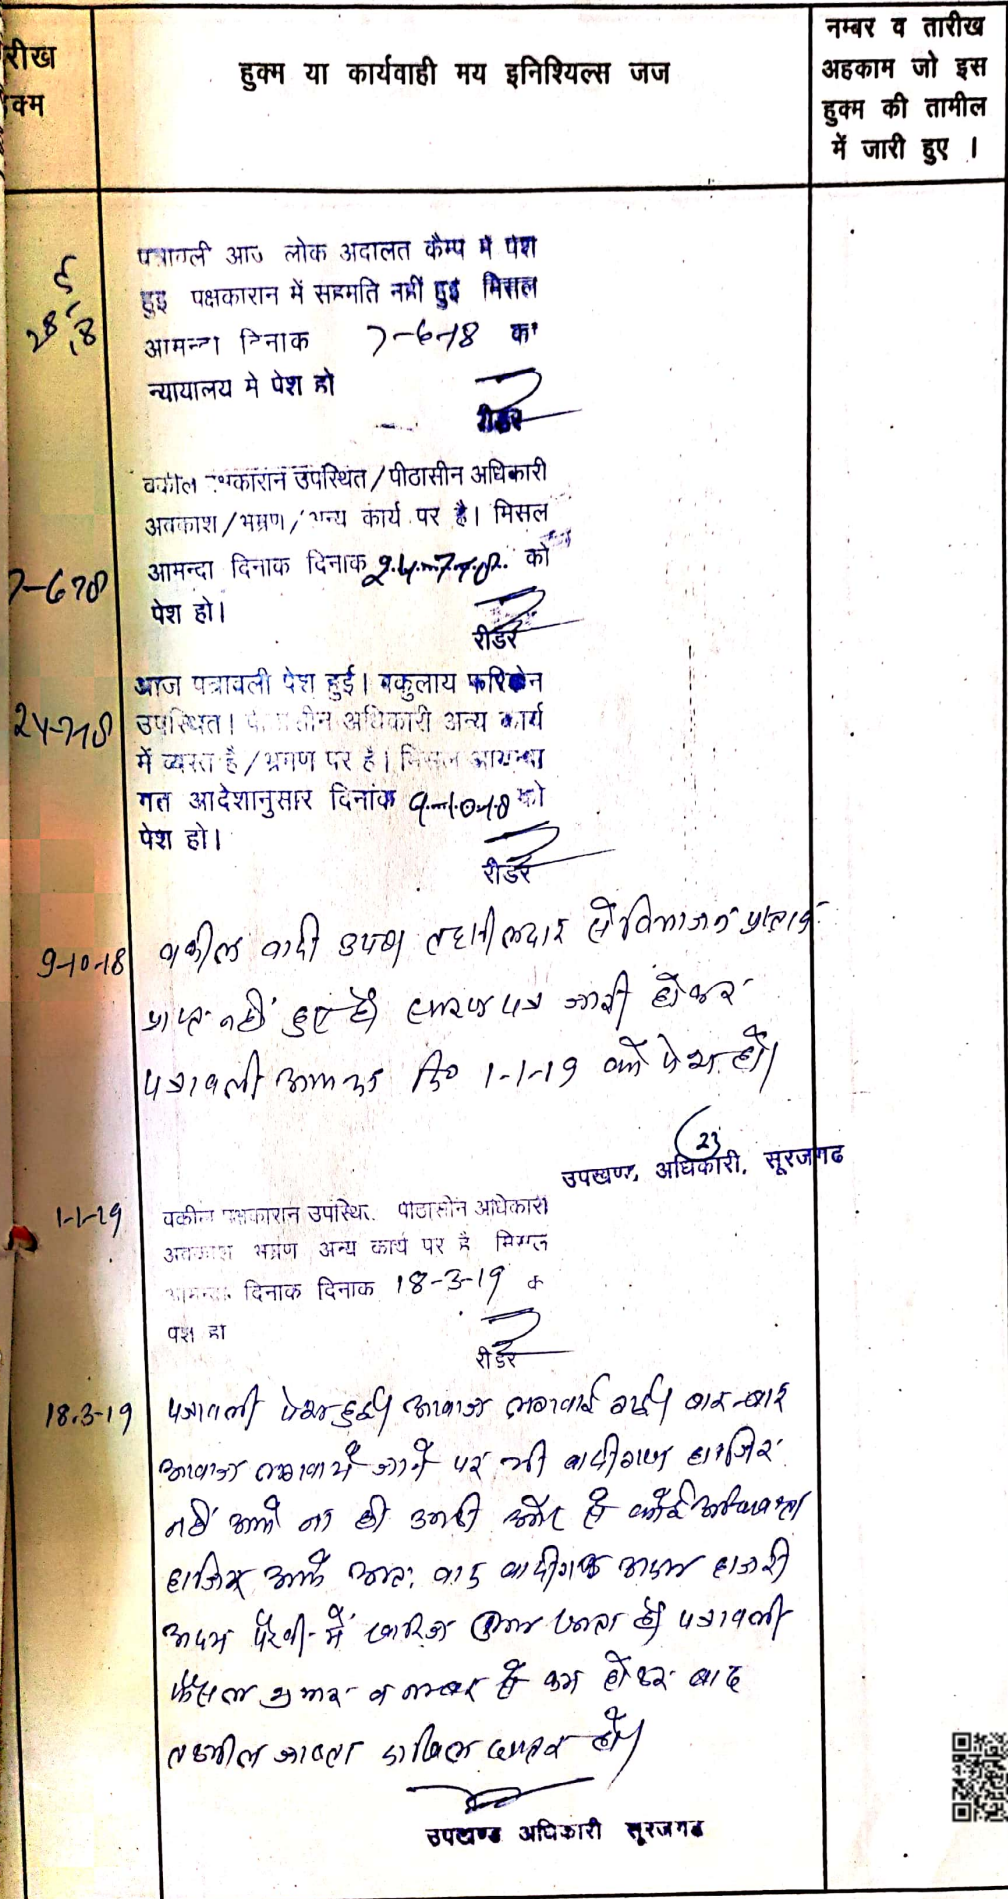 रीख
क्म
हुक्म या कार्यवाही मय इनिश्यिल्स जज
नम्बर व तारीख
अहकाम जो इस
हुक्म की तामील
में जारी हुए ।
पत्रावली आज लोक अदालत कैम्प में पेश
हुइ पक्षकारान में सहमति नहीं हुई मिसल
आमन्दा दिनाक 7-6-18 को
न्यायालय मे पेश हो
रीडर
वकील पक्षकारान उपस्थित/पीठासीन अधिकारी
अवकाश/भम्रण/अन्य कार्य पर है। मिसल
7-6-18
आमन्दा दिनाक दिनाक 24-7-18 को
पेश हो।
रीडर
आज पत्रावली पेश हुई। वकुलाय फरिकेन
24-7-18
उपस्थित। पीठासीन अधिकारी अन्य कार्य
में व्यस्त है/भ्रमण पर है। मिसल आयन्दा
गत आदेशानुसार दिनांक 9-10-18 को
पेश हो।
रीडर
9-10-18
वकील वादी उप० तहसीलदार से विभाजन प्रस्ताव
प्राप्त नहीं हुए है। स्मरण पत्र जारी होकर
पत्रावली दि० 1-1-19 को पेश हो।
23
उपखण्ड अधिकारी, सूरजगढ
1-1-19
वकील पक्षकारान उपस्थित. पीठासीन अधिकारी
अवकाश भम्रण अन्य कार्य पर है मिसल
आमन्दा दिनाक दिनाक 18-3-19 क
पेश हो
रीडर
18-3-19
पत्रावली पेश हुई। आवाज लगवाई गई। बार-बार
आवाज लगवाये जाने पर भी वादीगण हाजिर
नहीं आये ना ही उनकी और से कोई अधिवक्ता
हाजिर आये अतः वाद वादीगण अदम हाजरी
अदम पैरवी में खारिज किया जाता है। पत्रावली
फैसल शुमार व नम्बर से कम होकर बाद
तकमील जाब्ता दाखिल दफ्तर हो।
उपखण्ड अधिकारी सूरजगढ